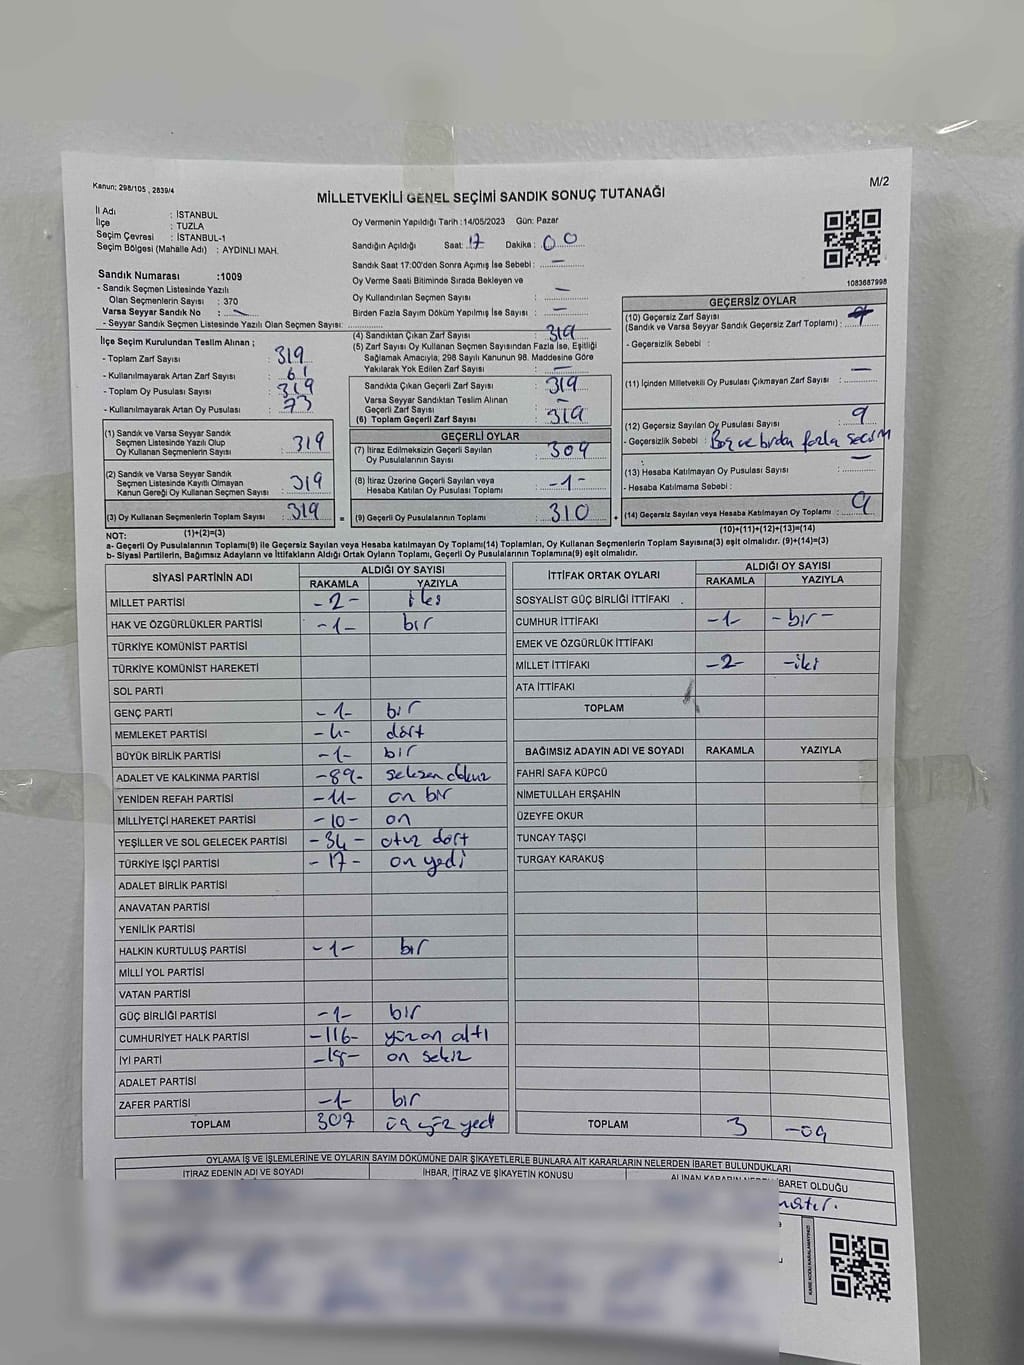 Kanun; 298/105 , 2839/4
M/2
MİLLETVEKİLİ GENEL SEÇİMİ SANDIK SONUÇ TUTANAĞI
İl Adı : İSTANBUL
İlçe : TUZLA
Seçim Çevresi : İSTANBUL-1
Seçim Bölgesi (Mahalle Adı) : AYDINLI MAH.
Oy Vermenin Yapıldığı Tarih :14/05/2023 Gün: Pazar
Sandığın Açıldığı Saat: 17 Dakika: 00
Sandık Saat 17:00'den Sonra Açımış İse Sebebi : —
Oy Verme Saati Bitiminde Sırada Bekleyen ve
Oy Kullandırılan Seçmen Sayısı : —
Birden Fazla Sayım Döküm Yapılmış İse Sayısı : —
1083687998
Sandık Numarası :1009
- Sandık Seçmen Listesinde Yazılı
Olan Seçmenlerin Sayısı : 370
Varsa Seyyar Sandık No : —
- Seyyar Sandık Seçmen Listesinde Yazılı Olan Seçmen Sayısı:
İlçe Seçim Kurulundan Teslim Alınan ;
- Toplam Zarf Sayısı : 319
- Kullanılmayarak Artan Zarf Sayısı : 61
- Toplam Oy Pusulası Sayısı : 319
- Kullanılmayarak Artan Oy Pusulası : 73
(1) Sandık ve Varsa Seyyar Sandık
Seçmen Listesinde Yazılı Olup
Oy Kullanan Seçmenlerin Sayısı : 319
(2) Sandık ve Varsa Seyyar Sandık
Seçmen Listesinde Kayıtlı Olmayan
Kanun Gereği Oy Kullanan Seçmen Sayısı : 319
(3) Oy Kullanan Seçmenlerin Toplam Sayısı : 319
(1)+(2)=(3)
(4) Sandıktan Çıkan Zarf Sayısı : 319
(5) Zarf Sayısı Oy Kullanan Seçmen Sayısından Fazla İse, Eşitliği
Sağlamak Amacıyla, 298 Sayılı Kanunun 98. Maddesine Göre
Yakılarak Yok Edilen Zarf Sayısı : —
Sandıkta Çıkan Geçerli Zarf Sayısı : 319
Varsa Seyyar Sandıktan Teslim Alınan
Geçerli Zarf Sayısı : —
(6) Toplam Geçerli Zarf Sayısı : 319
GEÇERLİ OYLAR
(7) İtiraz Edilmeksizin Geçerli Sayılan
Oy Pusulalarının Sayısı : 309
(8) İtiraz Üzerine Geçerli Sayılan veya
Hesaba Katılan Oy Pusulası Toplamı : -1-
(9) Geçerli Oy Pusulalarının Toplamı : 310
GEÇERSİZ OYLAR
(10) Geçersiz Zarf Sayısı
(Sandık ve Varsa Seyyar Sandık Geçersiz Zarf Toplamı) :
- Geçersizlik Sebebi :
(11) İçinden Milletvekili Oy Pusulası Çıkmayan Zarf Sayısı : —
(12) Geçersiz Sayılan Oy Pusulası Sayısı : 9
- Geçersizlik Sebebi : Boş ve birden fazla seçim
(13) Hesaba Katılmayan Oy Pusulası Sayısı : —
- Hesaba Katılmama Sebebi :
(14) Geçersiz Sayılan veya Hesaba Katılmayan Oy Toplamı : 9
(10)+(11)+(12)+(13)=(14)
NOT:
a- Geçerli Oy Pusulalarının Toplamı(9) ile Geçersiz Sayılan veya Hesaba katılmayan Oy Toplamı(14) Toplamları, Oy Kullanan Seçmenlerin Toplam Sayısına(3) eşit olmalıdır. (9)+(14)=(3)
b- Siyasi Partilerin, Bağımsız Adayların ve İttifakların Aldığı Ortak Oyların Toplamı, Geçerli Oy Pusulalarının Toplamına(9) eşit olmalıdır.
SİYASİ PARTİNİN ADI ALDIĞI OY SAYISI
RAKAMLA YAZIYLA
MİLLET PARTİSİ -2- iki
HAK VE ÖZGÜRLÜKLER PARTİSİ -1- bir
TÜRKİYE KOMÜNİST PARTİSİ
TÜRKİYE KOMÜNİST HAREKETİ
SOL PARTİ
GENÇ PARTİ -1- bir
MEMLEKET PARTİSİ -4- dört
BÜYÜK BİRLİK PARTİSİ -1- bir
ADALET VE KALKINMA PARTİSİ -89- seksen dokuz
YENİDEN REFAH PARTİSİ -11- on bir
MİLLİYETÇİ HAREKET PARTİSİ -10- on
YEŞİLLER VE SOL GELECEK PARTİSİ -34- otuz dört
TÜRKİYE İŞÇİ PARTİSİ -17- on yedi
ADALET BİRLİK PARTİSİ
ANAVATAN PARTİSİ
YENİLİK PARTİSİ
HALKIN KURTULUŞ PARTİSİ -1- bir
MİLLİ YOL PARTİSİ
VATAN PARTİSİ
GÜÇ BİRLİĞİ PARTİSİ -1- bir
CUMHURİYET HALK PARTİSİ -116- yüz on altı
İYİ PARTİ -18- on sekiz
ADALET PARTİSİ
ZAFER PARTİSİ -1- bir
TOPLAM 307 üç yüz yedi
İTTİFAK ORTAK OYLARI ALDIĞI OY SAYISI
RAKAMLA YAZIYLA
SOSYALİST GÜÇ BİRLİĞİ İTTİFAKI
CUMHUR İTTİFAKI -1- -bir-
EMEK VE ÖZGÜRLÜK İTTİFAKI
MİLLET İTTİFAKI -2- -iki
ATA İTTİFAKI
TOPLAM
BAĞIMSIZ ADAYIN ADI VE SOYADI RAKAMLA YAZIYLA
FAHRİ SAFA KÜPCÜ
NİMETULLAH ERŞAHİN
ÜZEYFE OKUR
TUNCAY TAŞÇI
TURGAY KARAKUŞ
TOPLAM 3 -üç
OYLAMA İŞ VE İŞLEMLERİNE VE OYLARIN SAYIM DÖKÜMÜNE DAİR ŞİKAYETLERLE BUNLARA AİT KARARLARIN NELERDEN İBARET BULUNDUKLARI
İTİRAZ EDENİN ADI VE SOYADI İHBAR, İTİRAZ VE ŞİKAYETİN KONUSU ALINAN KARARIN NEDEN İBARET OLDUĞU